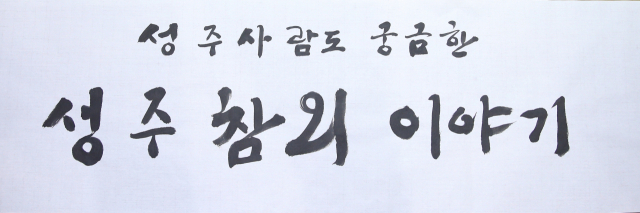 성주사람도 궁금한
성주 참외 이야기